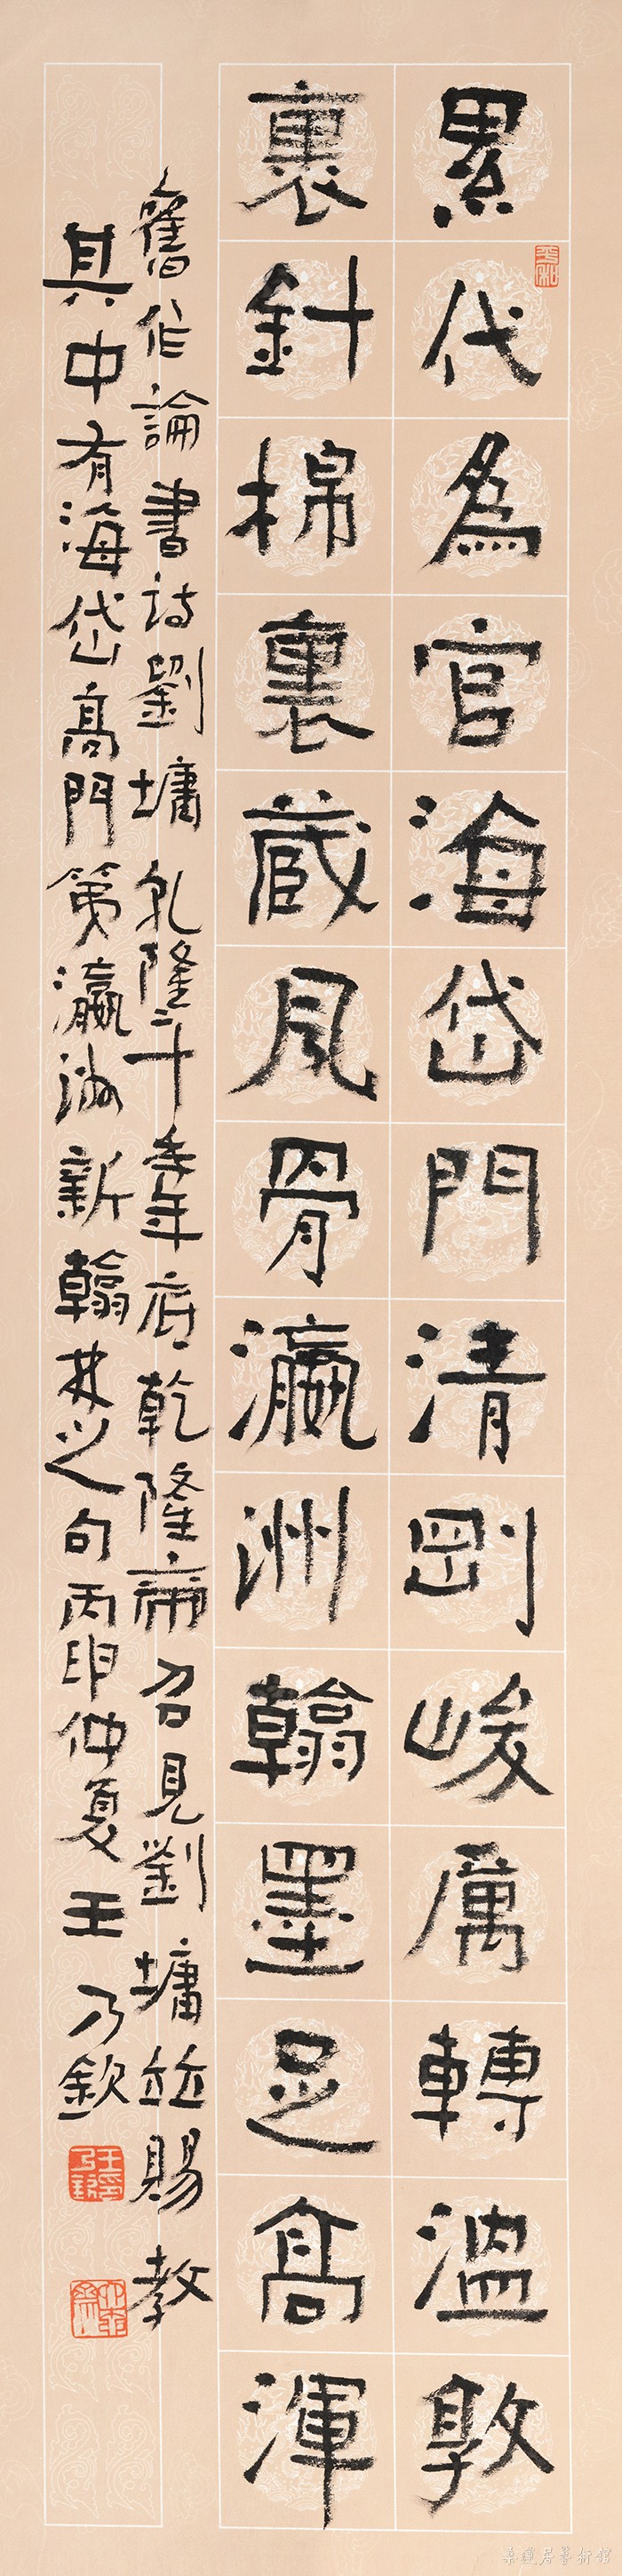 累代為官海岱門清剛峻厲轉溫敦
裏針棉裏藏風骨瀛洲翰墨足高渾
舊作論書詩劉墉乾隆三十季年底乾隆帝召見劉墉並賜教
其中有海岱高門第瀛洲新翰林之句丙申仲夏王乃欽